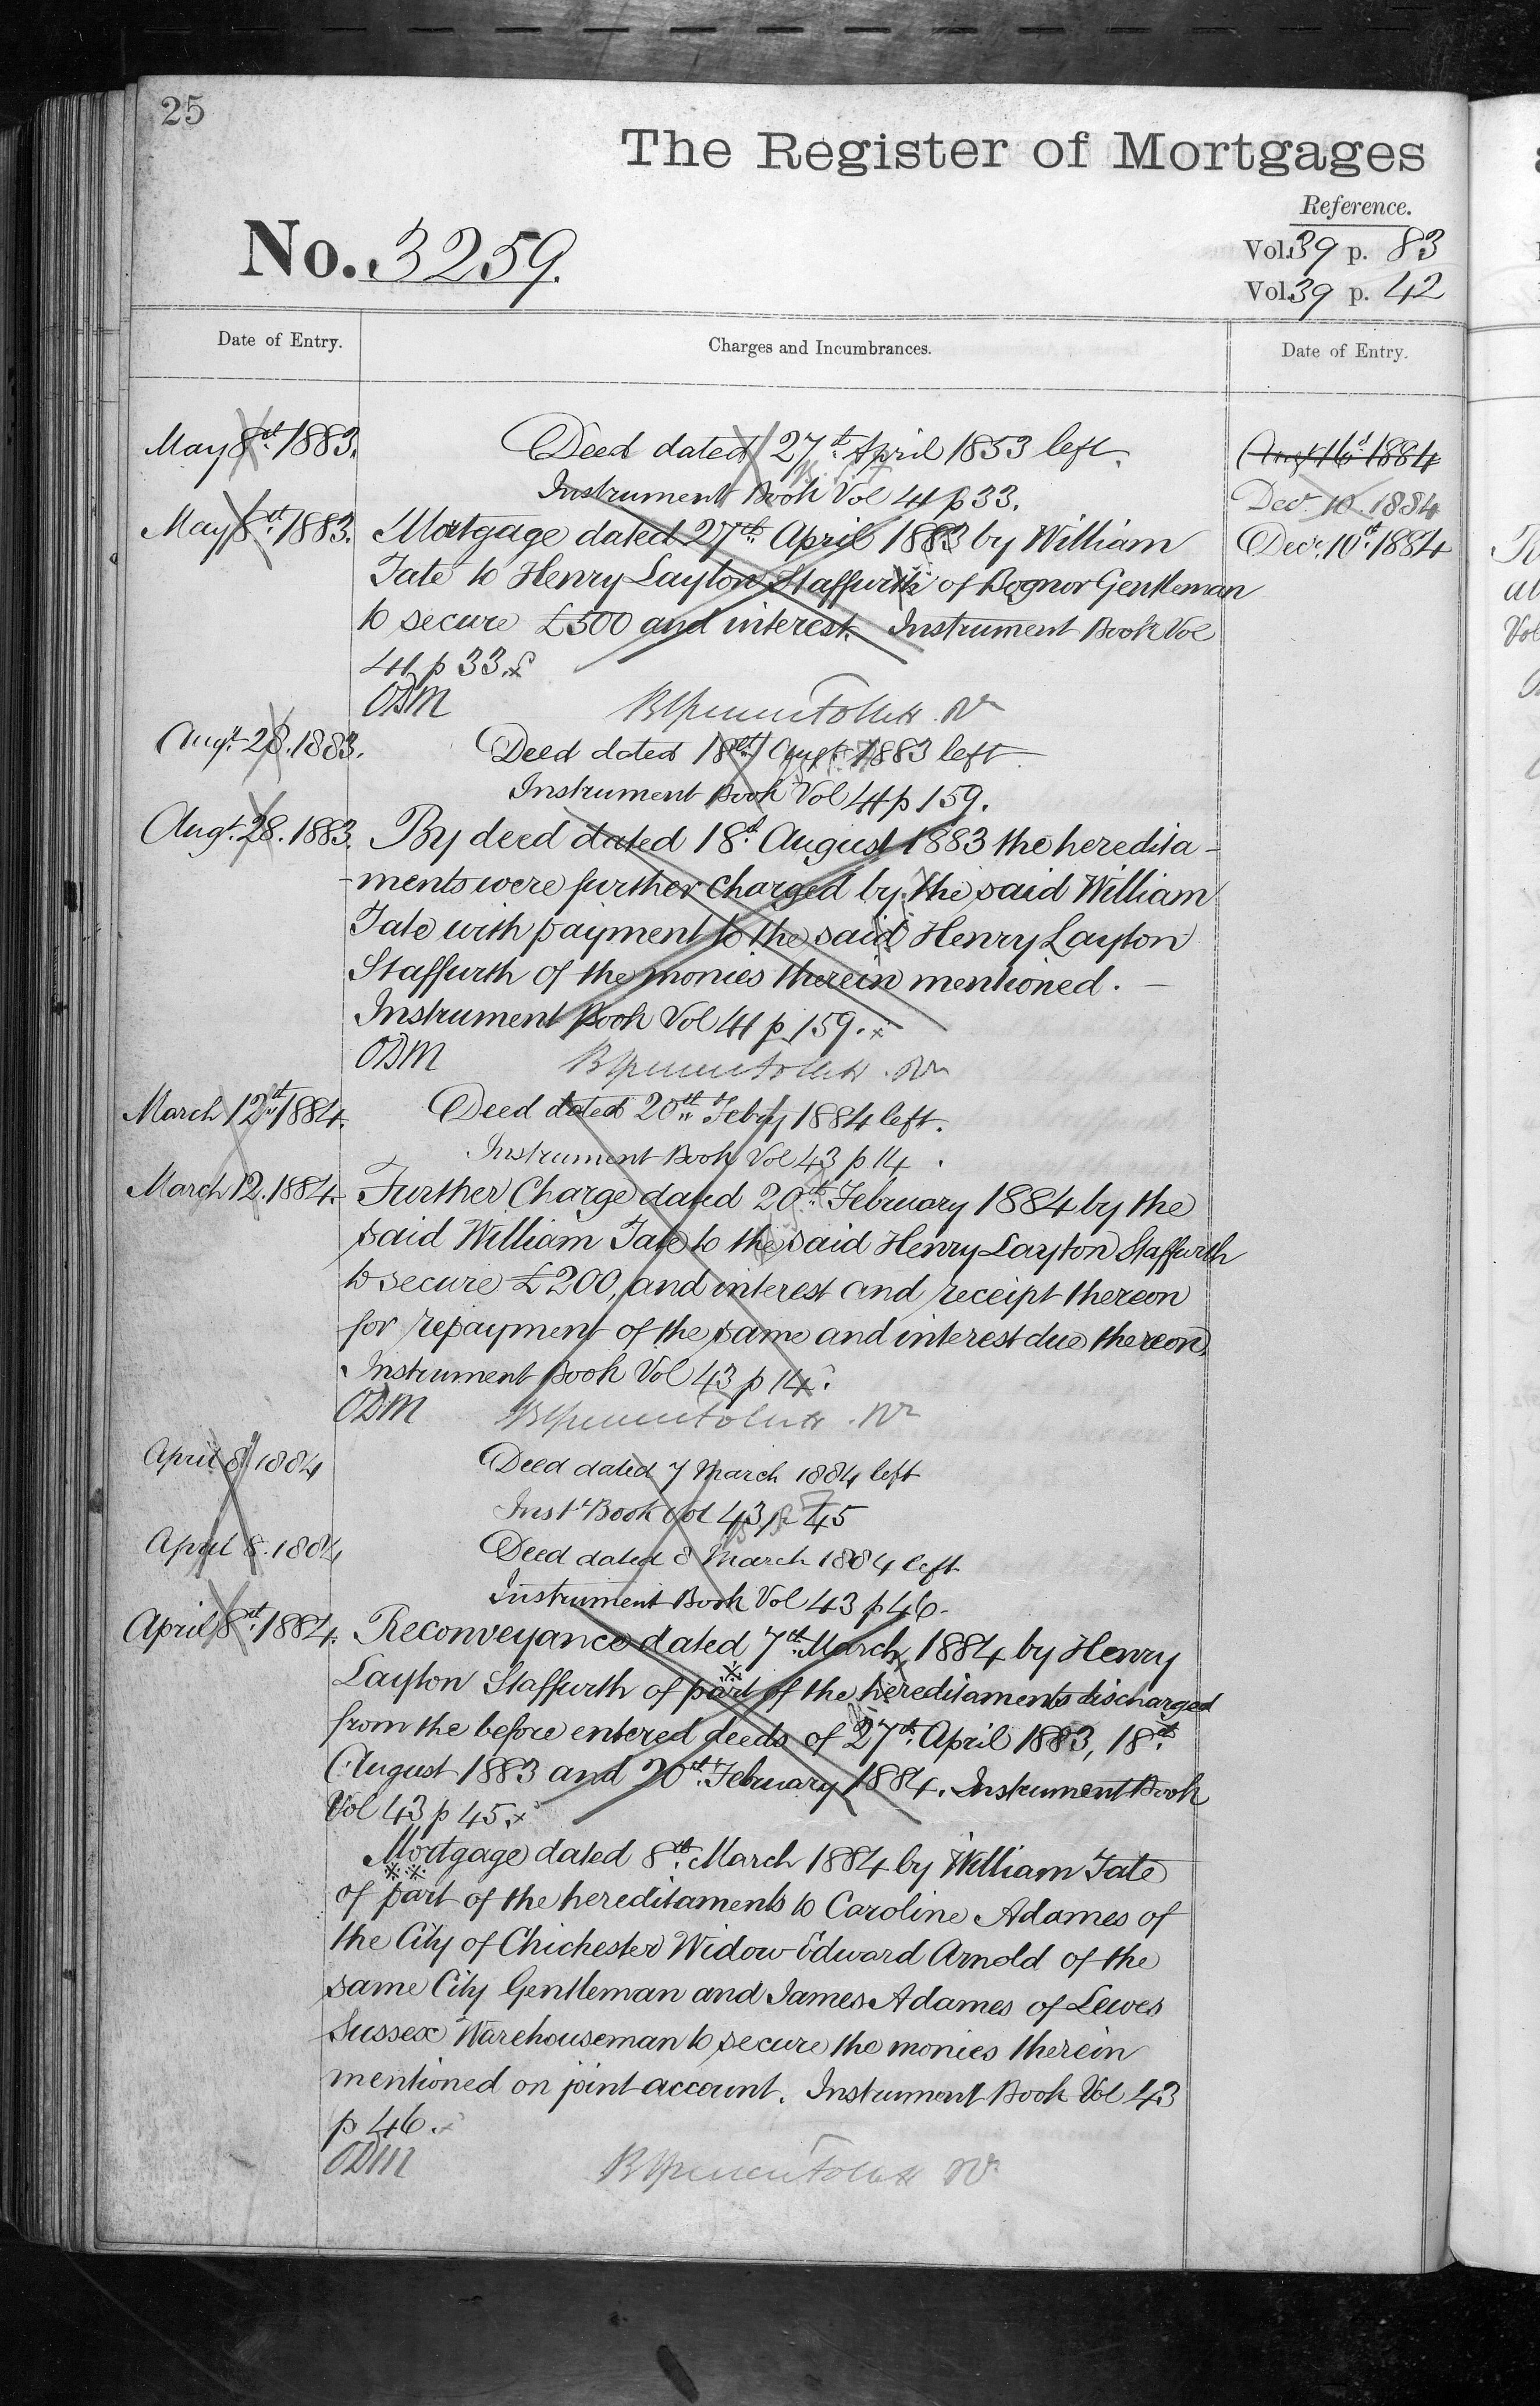 25
The Register of Mortgages
Reference.
No. 3259.
Vol. 39 p. 83
Vol. 39 p. 42
Date of Entry.
Charges and Incumbrances.
Date of Entry.
May 8th 1883. Deed dated 27th April 1853 left.
Instrument Book Vol 41 p 33.
May 8th 1883. Mortgage dated 27th April 1883 by William
Tate to Henry Layton Staffurth of Bognor Gentleman
to secure £500 and interest. Instrument Book Vol
41 p 33. x
ODM
Augt. 28. 1883. Deed dated 18th Augt. 1883 left
Instrument Book Vol 41 p 159.
Augt. 28. 1883. By deed dated 18th August 1883 the heredita-
-ments were further charged by the said William
Tate with payment to the said Henry Layton
Staffurth of the monies therein mentioned. —
Instrument Book Vol 41 p 159. x
ODM
March 12th 1884. Deed dated 20th Feby 1884 left.
Instrument Book Vol 43 p 14.
March 12. 1884. Further Charge dated 20th February 1884 by the
said William Tate to the said Henry Layton Staffurth
to secure £200, and interest and receipt thereon
for repayment of the same and interest due thereon.
Instrument Book Vol 43 p 14.
ODM
April 8 1884 Deed dated 7 March 1884 left
Inst. Book Vol 43 p 45
April 8. 1884 Deed dated 8 March 1884 left
Instrument Book Vol 43 p 46.
April 8th 1884. Reconveyance dated 7th March, 1884 by Henry
Layton Staffurth of part of the hereditaments discharged
from the before entered deeds of 27th April 1883, 18th
August 1883 and 20th February 1884. Instrument Book
Vol 43 p 45. x
Mortgage dated 8th March 1884 by William Tate
of part of the hereditaments to Caroline Adames of
the City of Chichester Widow Edward Arnold of the
same City Gentleman and James Adames of Lewes
Sussex Warehouseman to secure the monies therein
mentioned on joint account. Instrument Book Vol 43
p 46. x
ODM
Augt 16th 1884
Decr. 10. 1884
Decr. 10th 1884